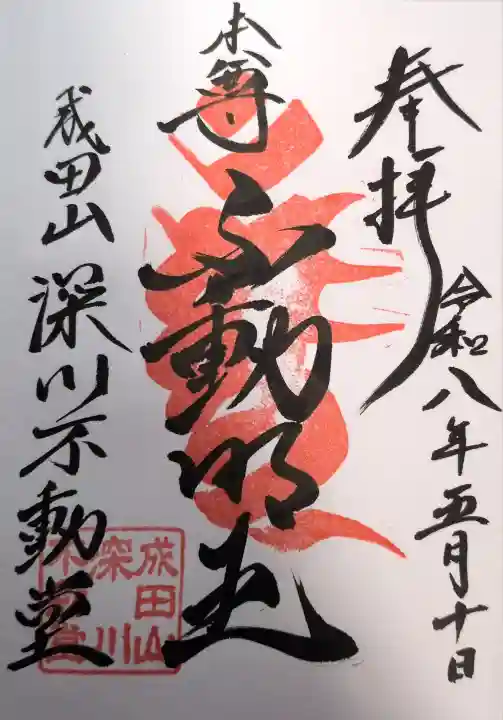 奉拝
令和八年五月十日
本尊
不動明王
成田山
深川不動堂
成田山
深川
不動堂